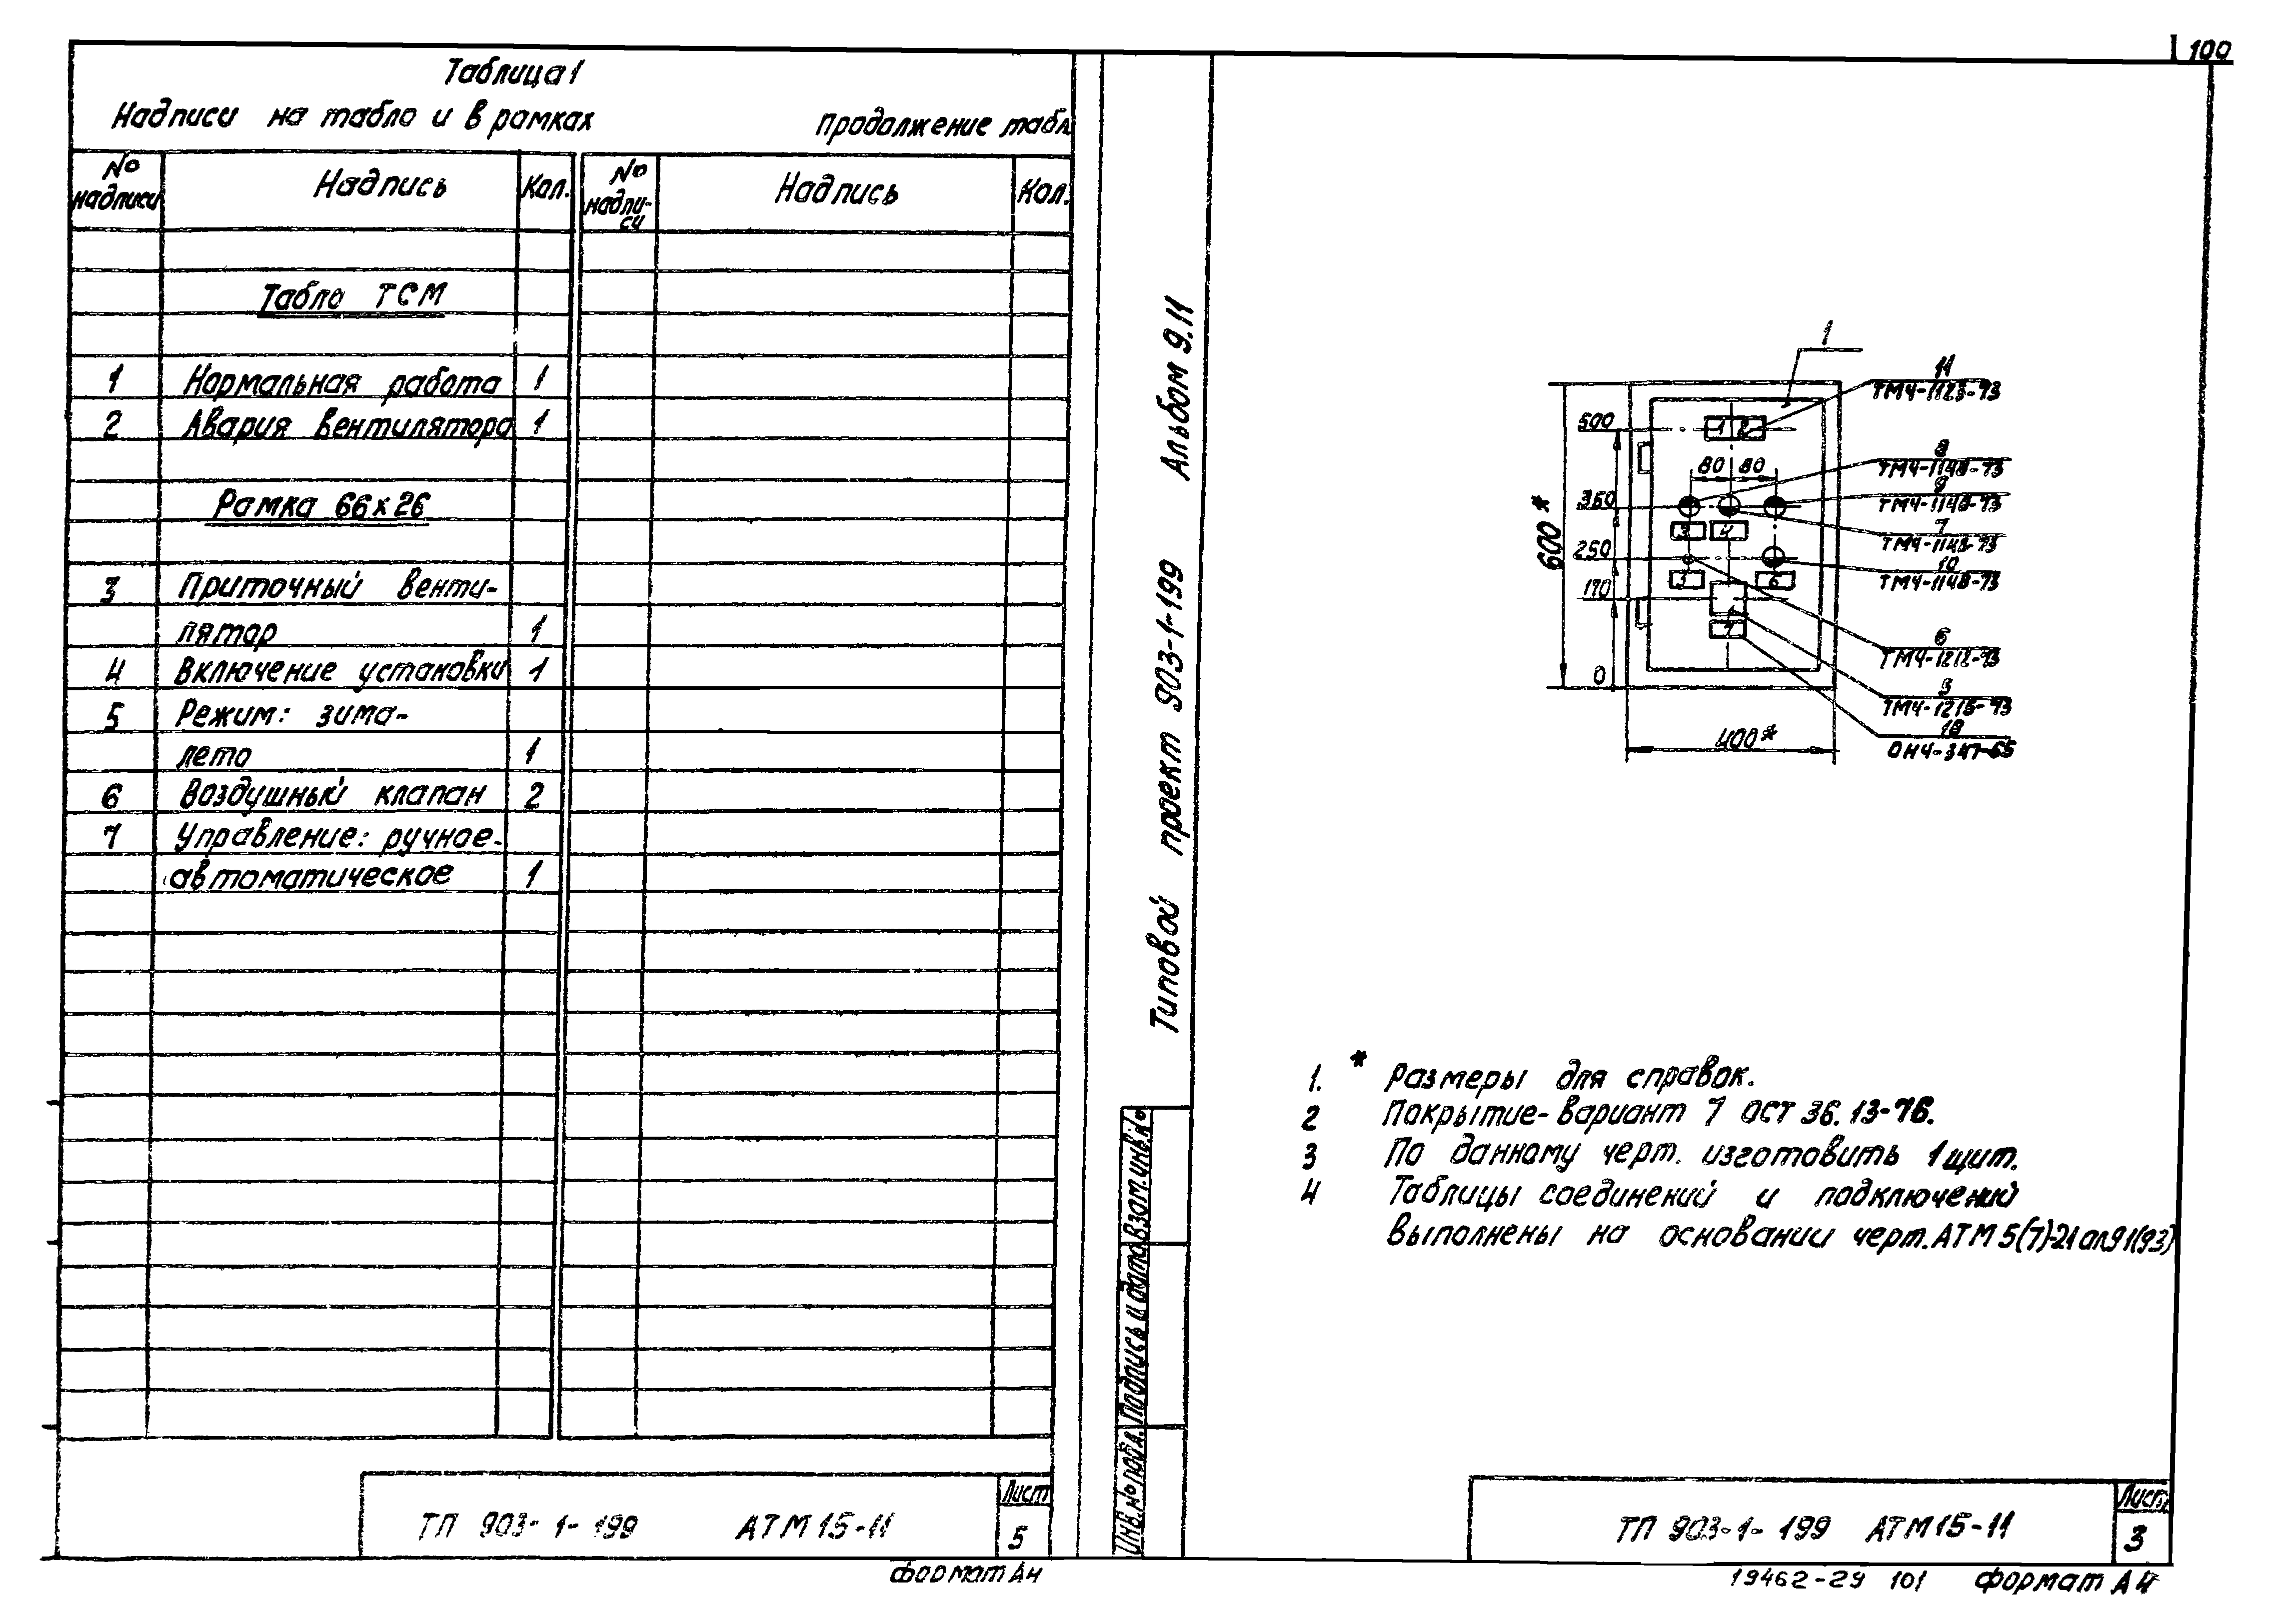 100
Таблица 1
Надписи на табло и в рамках
продолжение табл.
№ надписи Надпись Кол.
№ надпи-
си Надпись Кол.
Табло ТСМ
1 Нормальная работа 1
2 Авария вентилятора 1
Рамка 66х26
3 Приточный венти-
лятор 1
4 Включение установки 1
5 Режим: зима-
лето 1
6 Воздушный клапан 2
7 Управление: ручное-
автоматическое 1
ТП 903-1-199 АТМ15-11
Лист
5
формат А4
Типовой проект 903-1-199 Альбом 9.11
Инв.№ подл. Подпись и дата Взам.инв.№
1
11
ТМ4-1123-73
8
ТМ4-1148-73
9
ТМ4-1148-73
7
ТМ4-1148-73
10
ТМ4-1148-73
6
ТМ4-1212-73
5
ТМ4-1215-73
18
ОН4-347-65
500
360
250
170
0
600*
400*
80 80
1 2
3 4
5 6
7
1. * Размеры для справок.
2 Покрытие-вариант 7 ОСТ 36.13-76.
3 По данному черт. изготовить 1 щит.
4 Таблицы соединений и подключений
выполнены на основании черт. АТМ5(7)-21 ал.9.1(9.3)
ТП 903-1-199 АТМ15-11
Лист
3
19462-29 101 формат А4